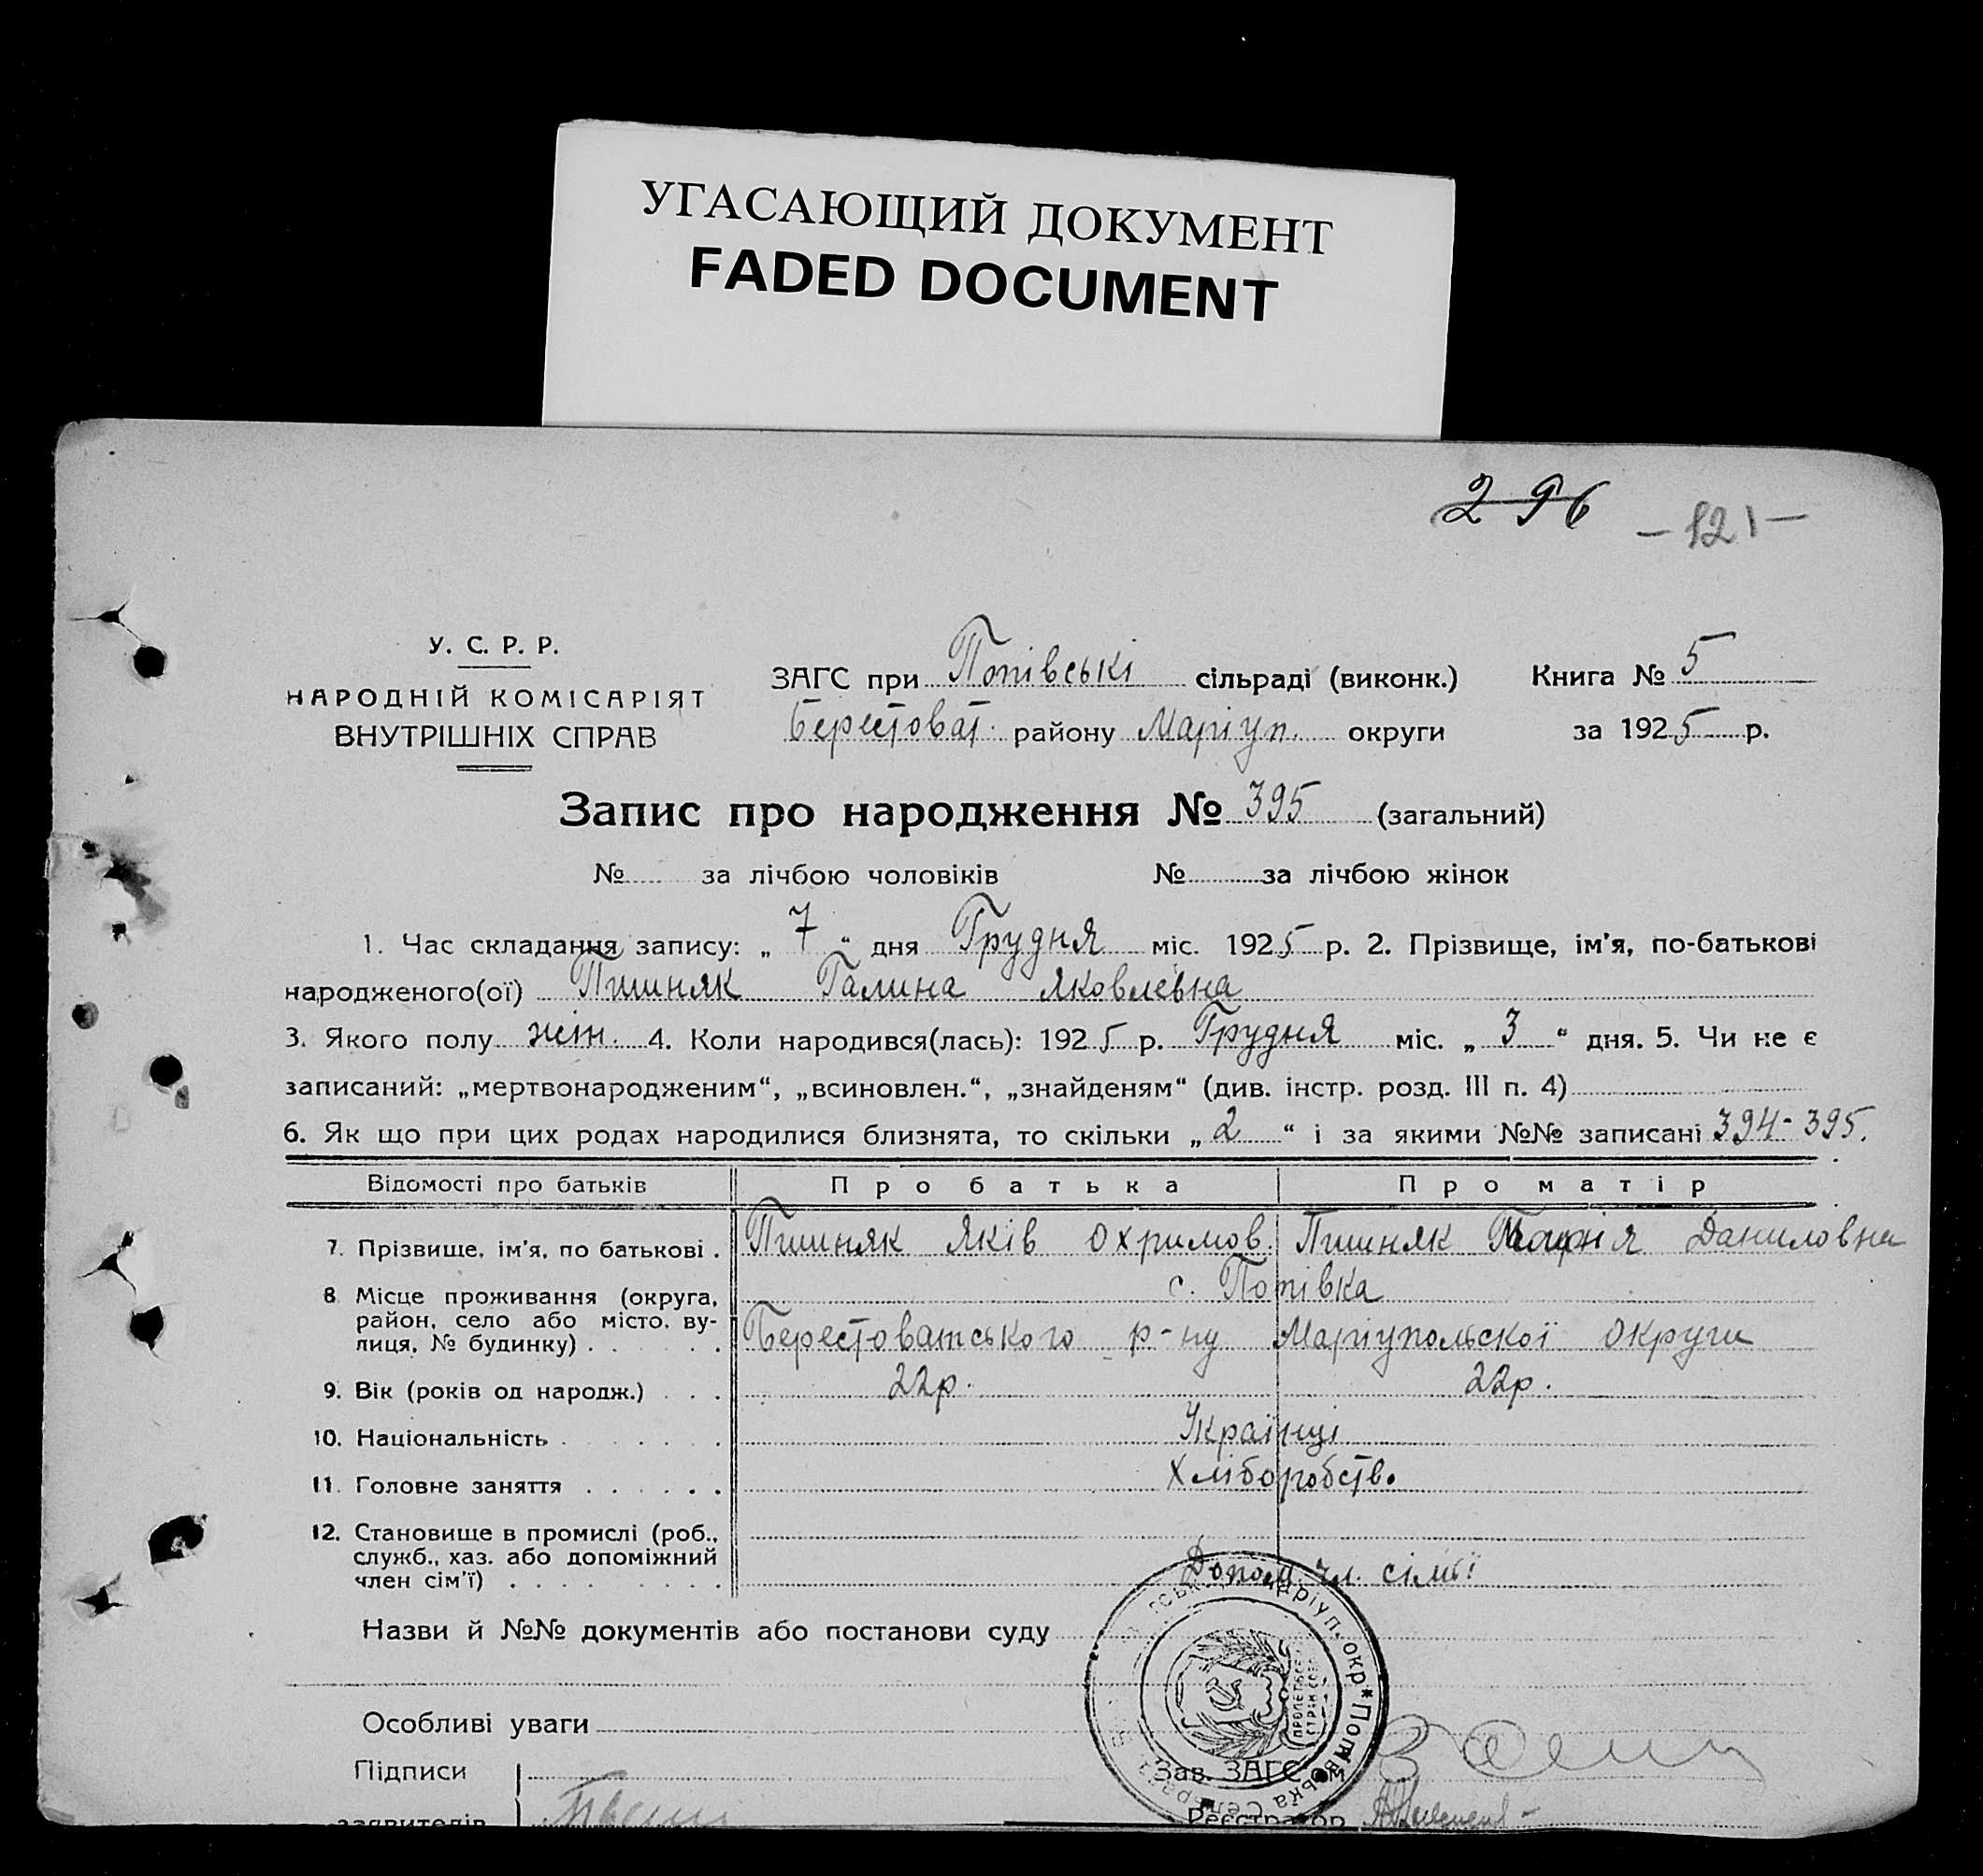 УГАСАЮЩИЙ ДОКУМЕНТ
FADED DOCUMENT
296
-121-
У. С. Р. Р.
НАРОДНІЙ КОМІСАРІЯТ
ВНУТРІШНІХ СПРАВ
ЗАГС при Попівські сільраді (виконк.) Книга № 5
Берестоват. району Маріуп. округи за 1925 р.
Запис про народження № 395 (загальний)
№ за лічбою чоловіків № за лічбою жінок
1. Час складання запису: „ 7 “ дня Грудня міс. 1925 р. 2. Прізвище, ім'я, по-батькові
народженого(ої) Пшиняк Галина Яковлевна
3. Якого полу жін. 4. Коли народився(лась): 1925 р. Грудня міс. „ 3 “ дня. 5. Чи не є
записаний: „мертвонародженим“, „всиновлен.“, „знайденям“ (див. інстр. розд. III п. 4)
6. Як що при цих родах народилися близнята, то скільки „ 2 “ і за якими №№ записані 394-395.
Відомості про батьків Про батька Про матір
7. Прізвище, ім'я, по батькові . Пшиняк Яків Охримов. Пшиняк Марія Даниловна
с. Попівка
8 Місце проживання (округа,
район, село або місто, ву-
лиця, № будинку) . . . . Берестоватського р-ну Маріупольскої округи
9. Вік (років од народж.) . . . 22р. 22р.
10. Національність . . . . . . Українці
11. Головне заняття . . . . . . Хліборобств.
12. Становище в промислі (роб.,
служб., хаз. або допоміжний
член сім'ї) . . . . . . . . Допом. чл. сімї
Назви й №№ документів або постанови суду
Маріуп. окр * Попівська Сельрада
ПРОЛЕТ
Особливі уваги
Підписи
заявителів
Зав. ЗАГС'ом
Реєстратор